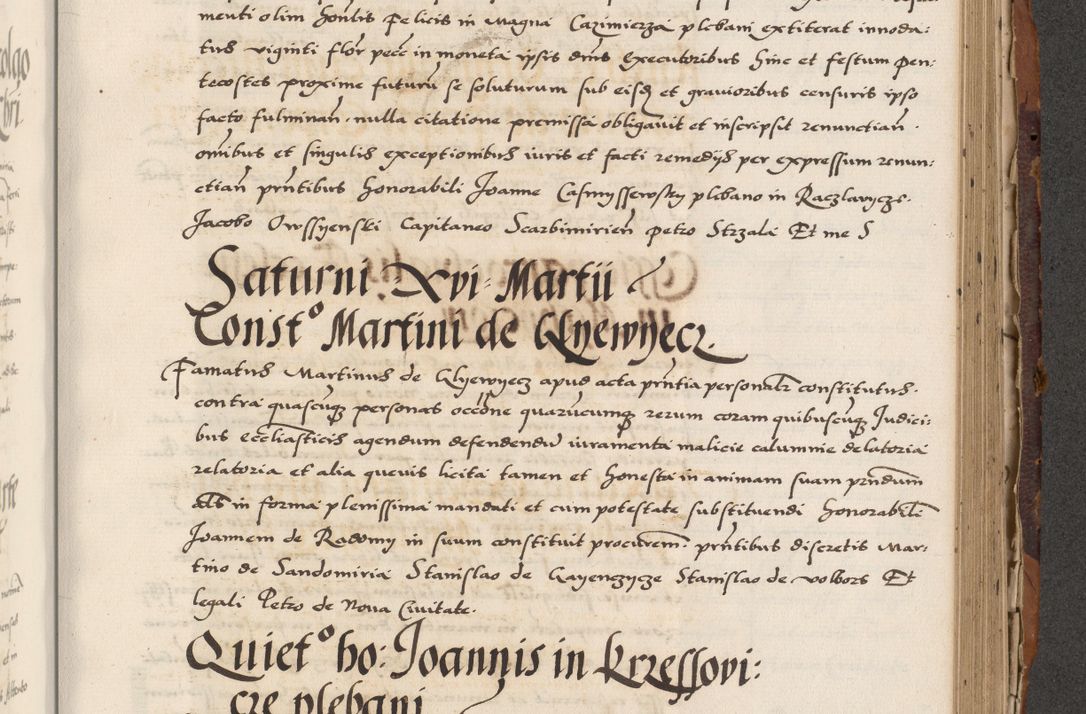 menti olim honlis Felicis in Magna Cazimierza plebani extiterat innoda:
tus viginti flor pecc in moneta ipsis dnis executoribus hinc et festum Pen:
tecostes proxime futuru se soluturum sub eisq et gravioribus censuris ipso
facto fulminan. nulla citatione premissa obligavit et inscripsit renunctian.
omnibus et singulis exceptionibus iuris et facti remediis per expressum renun:
ctian prntibus honorabili Joanne Casmyssewsky plebano in Raczlavycze.
Jacobo Owssyenski Capitaneo Scarbimirien petro Strzala Et me S
Saturni: Xvi: Martii
Constº Martini de Glyewyecz.
Famatus Martinus de Glyewyecz apud acta prntia personalr constitutus.
contra quascuqz personas occone quarucumqz rerum coram quibuscuqz Judici:
bus ecclesiasticis agendum defendendu iuramenta malicie calumnie delatoria
relatoria et alia quevis licita tamen et honesta in animam suam prndum
als in forma plenissima mandati et cum potestate substituendi honorabilem
Joannem de Radomy in suum constituit procurem. prntibus discretis Mar:
tino de Sandomiria Stanislao de Gayenczycze Stanislao de volbors Et
legali Petro de Nova Civitate.
Quietº ho: Joannis in krzessovi:
cze plebani